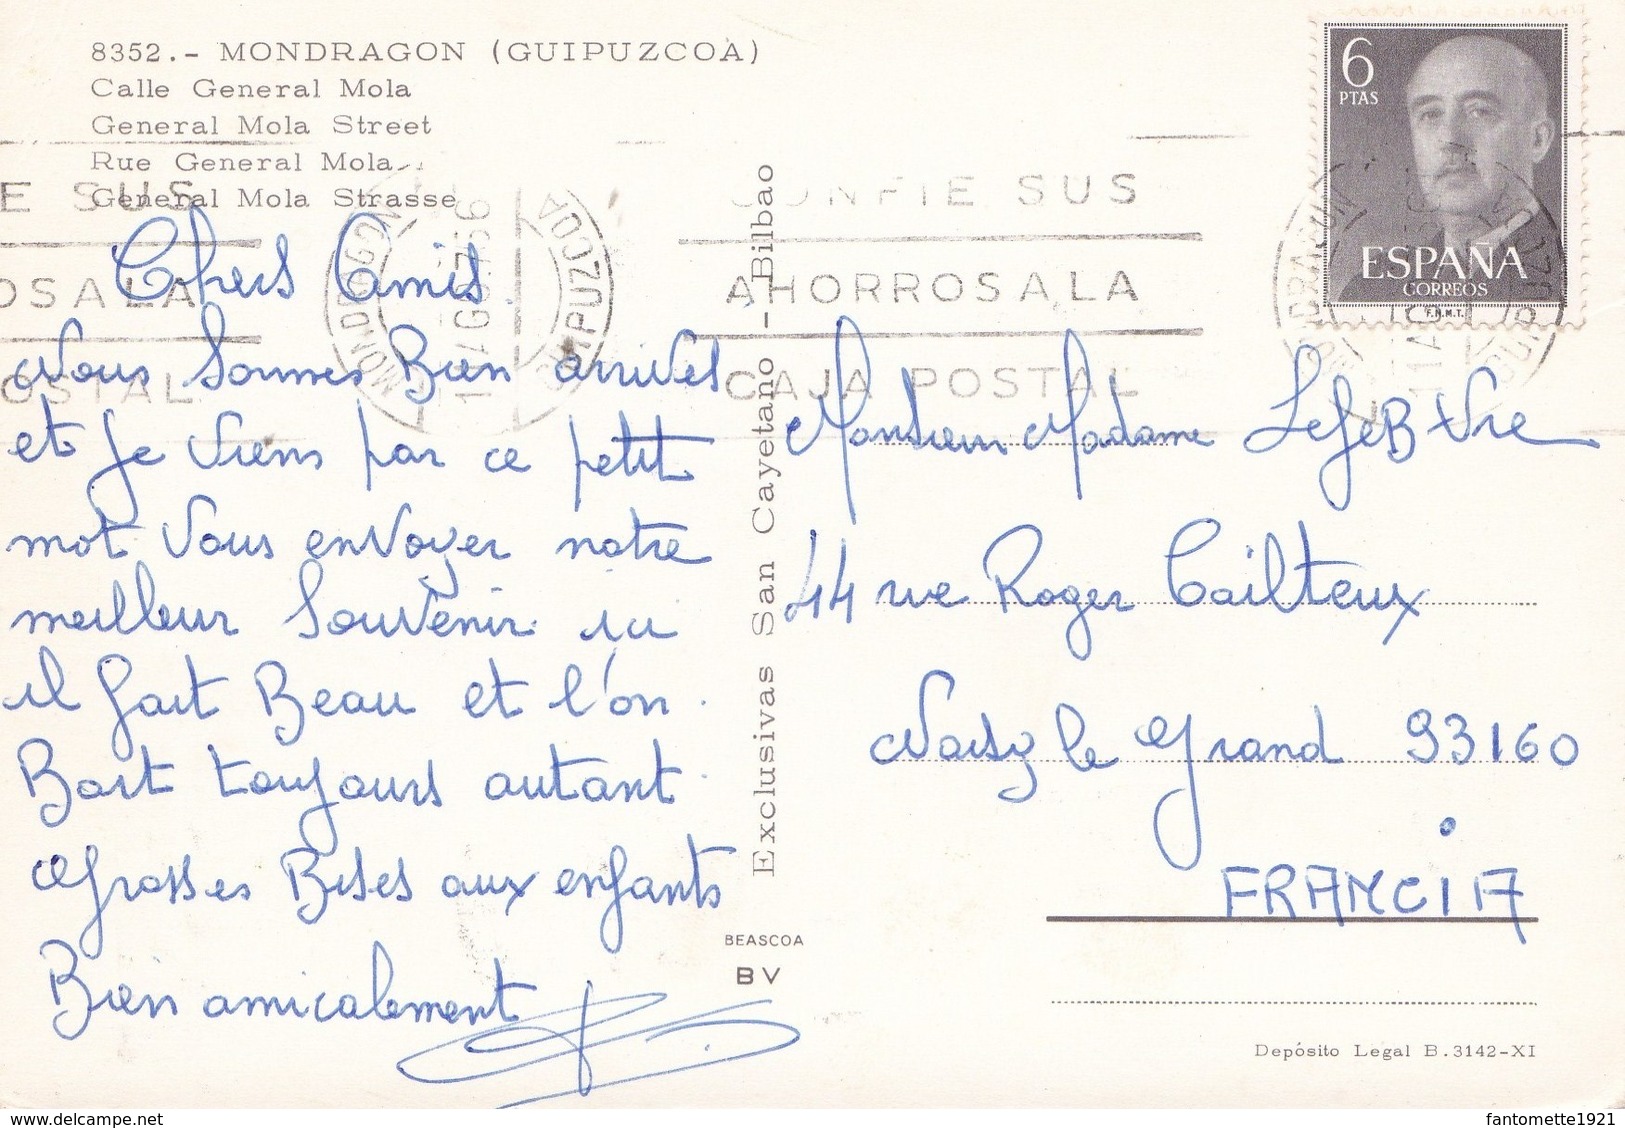 8352.- MONDRAGON (GUIPUZCOA)
Calle General Mola
General Mola Street
Rue General Mola
General Mola Strasse
6
PTAS
ESPAÑA
CORREOS
F.N.M.T.
E SUS
OS A LA
OSTAL
MONDRAGON
GUIPUZCOA
CONFIE SUS
AHORROS A LA
CAJA POSTAL
Chers Amis.
Nous Sommes Bien arrivés
et je viens par ce petit
mot vous envoyer notre
meilleur Souvenir ici
il fait Beau et l'on
Boit toujours autant
Grosses Bises aux enfants
Bien amicalement
Exclusivas San Cayetano - Bilbao
BEASCOA
BV
Monsieur Madame LefeBvre
44 rue Roger Cailteux
Noisy le Grand 93160
FRANCIA
Depósito Legal B.3142-XI
delcampe.net
fantomette1921